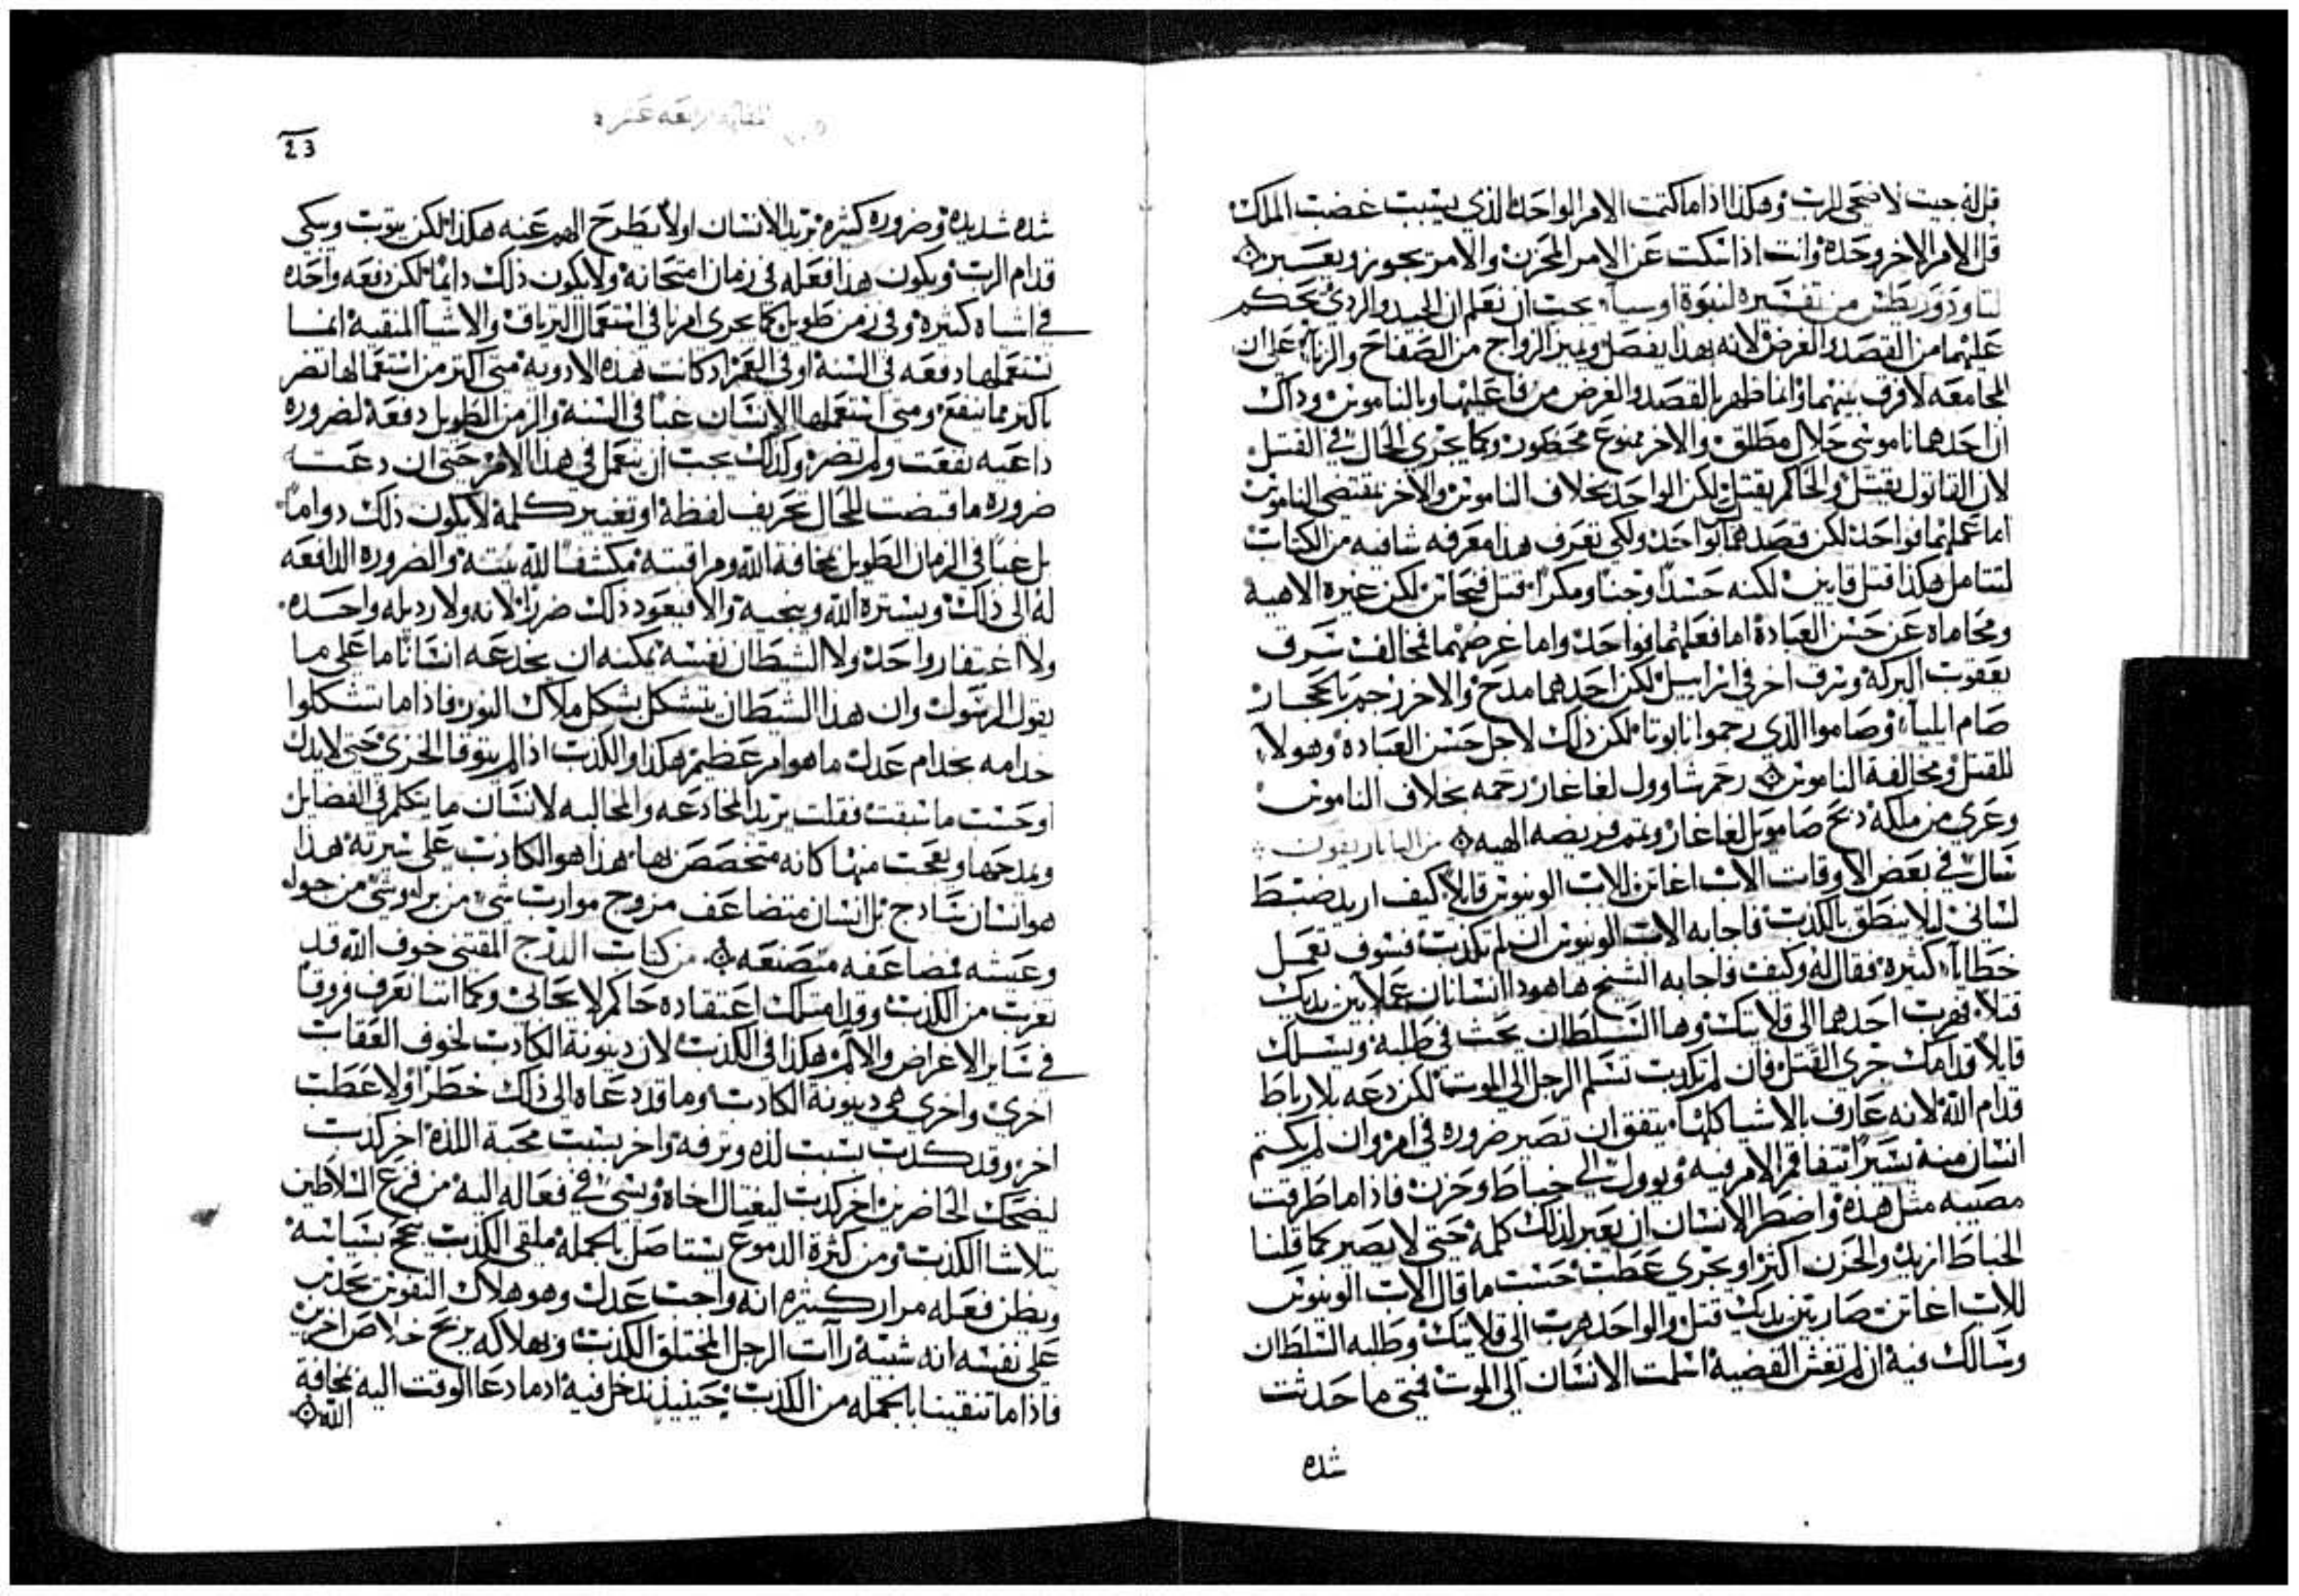 قل له جيت لاضحى للرب وهكذا اذا ما كتمت الامر الواحد الذي بسبب غضب الملك
قل الامر الاخر وحده وانت اذا سكت عن الامر المحزن والامر يجوز ويعبر
لتاودوريطس من تفسيره لنبوة اوسيا يجب ان نعلم ان الجيد والردي يحكم
عليهما من القصد والغرض لانه بهذا يفصل ويميز الزواج من الصفاح والزنا على ان
المجامعه لا فرق بينهما وانما ظهر بالقصد والغرض من فاعليها وبالناموس وذاك
ان احدهما ناموسي حلال مطلق والاخر ممنوع محظور وكما يجري الحال في القتل
لان القاتول يقتل والحاكم يقتل لكن الواحد بخلاف الناموس والاخر بمقتضى الناموس
اما عملهما فواحد لكن قصدهما لا واحد ولكي تعرف هذا معرفه شافيه من الكتاب
لنتامل هكذا قتل قايين لكنه حسدا وخبثا ومكرا قتل فنحاس لكن غيره الاهيه
ومحاماه عن حسن العباده اما فعلهما فواحد واما غرضهما فمخالف سرق
يعقوب البركه وسرق اخر في اسراييل لكن احدهما مدح والاخر رجم بالحجار
صام ايليا وصاموا الذي رجموا نابوتا لكن ذاك لاجل حسن العباده وهولا
للقتل ومخالفة الناموس رحم شاوول لغاغاز رحمه بخلاف الناموس
وعري من ملكه ذبح صامويل لغاغاز وتمم فريضه الهيه من الباناريقون
سال في بعض الاوقات الاب اغاثن للاب الونيوس قايلا كيف اريد ضبط
لساني ليلا ينطق بالكذب فاجابه الاب الونيوس ان لم تكذب فسوف تعمل
خطايا كثيره فقال له وكيف فاجابه الشيخ ها هوذا انسانان عملا بين يديك
قتلا فهرب احدهما الى قلايتك وها السلطان يبحث في طلبه ويسلك
قايلا قدامك جرى القتل فان لم تكذب تسلم الرجل الى الموت لكن دعه بلا رباط
قدام الله لانه عارف بالاشيا كلها يتفق ان تصير ضروره في امر وان لم يكتم
انسان منه يسيرا يتفاقم الامر فيه ويوول الى خباط وحزن فاذا ما طرقت
مصيبه مثل هذه واضطر الانسان ان يعبر لذلك كلمه حتى لا يصير كما قلنا
الخباط ازيد والحزن اكثر او يجري عطب حسب ما قال الاب الونيوس
للاب اغاثن صار بين يديك قتل والواحد هرب الى قلايتك وطلبه السلطان
وسالك فيه ان لم تغش القضيه اسلمت الانسان الى الموت فمتى ما حدثت
شده
المقاله الرابعه عشره
23
شده شديده وضروره كثيره تريد الانسان اولا يطرح الهم عنه هكذا لكن يتوب ويبكي
قدام الرب ويكون هذا فعله في زمان امتحانه ولا يكون ذلك دايما لكن دفعه واحده
في اشياه كثيره وفي زمن طويل كما يجري امرنا في استعمال الترياق والاشيا المنقيه انما
نستعملها دفعه في السنه او في العمر اذ كانت هذه الادويه متى اكثر من استعمالها تضر
باكثر مما تنفع ومتى استعملها الانسان غبا في السنه والزمن الطويل دفعه لضروره
داعيه نفعت ولم تضر وكذلك يجب ان يعمل في هذا الامر حتى ان دعت
ضروره ما قبضت للحال تحريف لفظه او تغيير كلمه لا يكون ذلك دواما
بل غبا في الزمان الطويل بمخافة الله ومراقبته مكشفا لله نيته والضروره الدافعه
له الى ذاك ويستره الله وينجيه والا فيعود ذلك ضررا لانه ولا رديله واحده
ولا اغتفار واحد ولا الشيطان نفسه يمكنه ان يخدعه انسانا ما على ما
يقول الرسول وان هذا الشيطان يتشكل بشكل ملاك النور فاذا ما تشكلوا
خدامه بخدام عدل ما هو امر عظيم هكذا والكذب اذ لم يتوقا الخزي حتى لا يدل
او حسب ما سبقت فقلت يريد المخادعه والمخالبه لانسان ما يتكلم في الفضايل
ويمدحها ويعجب منها كانه متخصص بها هذا هو الكاذب على سيرته هذا
هو انسان ساذج بل انسان متضاعف مزوج موارب شي من برا وشي من جوا
وعيشه مضاعفه متصنعه من كتاب الدرج المقتني خوف الله قد
تغرب من الكذب وقد امتلك اعتقاده حاكم لا يحابي وكما اننا نعرف فروقا
في ساير الاعراض والالم هكذا في الكذب لان دينونة الكاذب لخوف العقاب
اخرى واخرى هي دينونة الكاذب وما قد دعاه الى ذلك خطر ولا عطب
اخر وقد كذب بسبب لذه وترفه واخر بسبب محبة اللذه اخر كذب
ليضحك الحاضرين اخر كذب ليغتال اخاه ويسي في فعاله اليه من فزع السلاطين
يتلاشا الكذب ومن كثرة الدموع يستاصل بالجمله ملقي الكذب يحتج بسياسه
ويظن فعله مرار كثيره انه واجب عدل وهو هلاك النفوس يكذب
على نفسه انه شبه راآب الرجل المختلق الكذب وبهلاكه يربح خلاص اخرين
فاذا ما تنقينا بالجمله من الكذب حينيذ ندخل فيه اذ ما دعا الوقت اليه بمخافة
الله